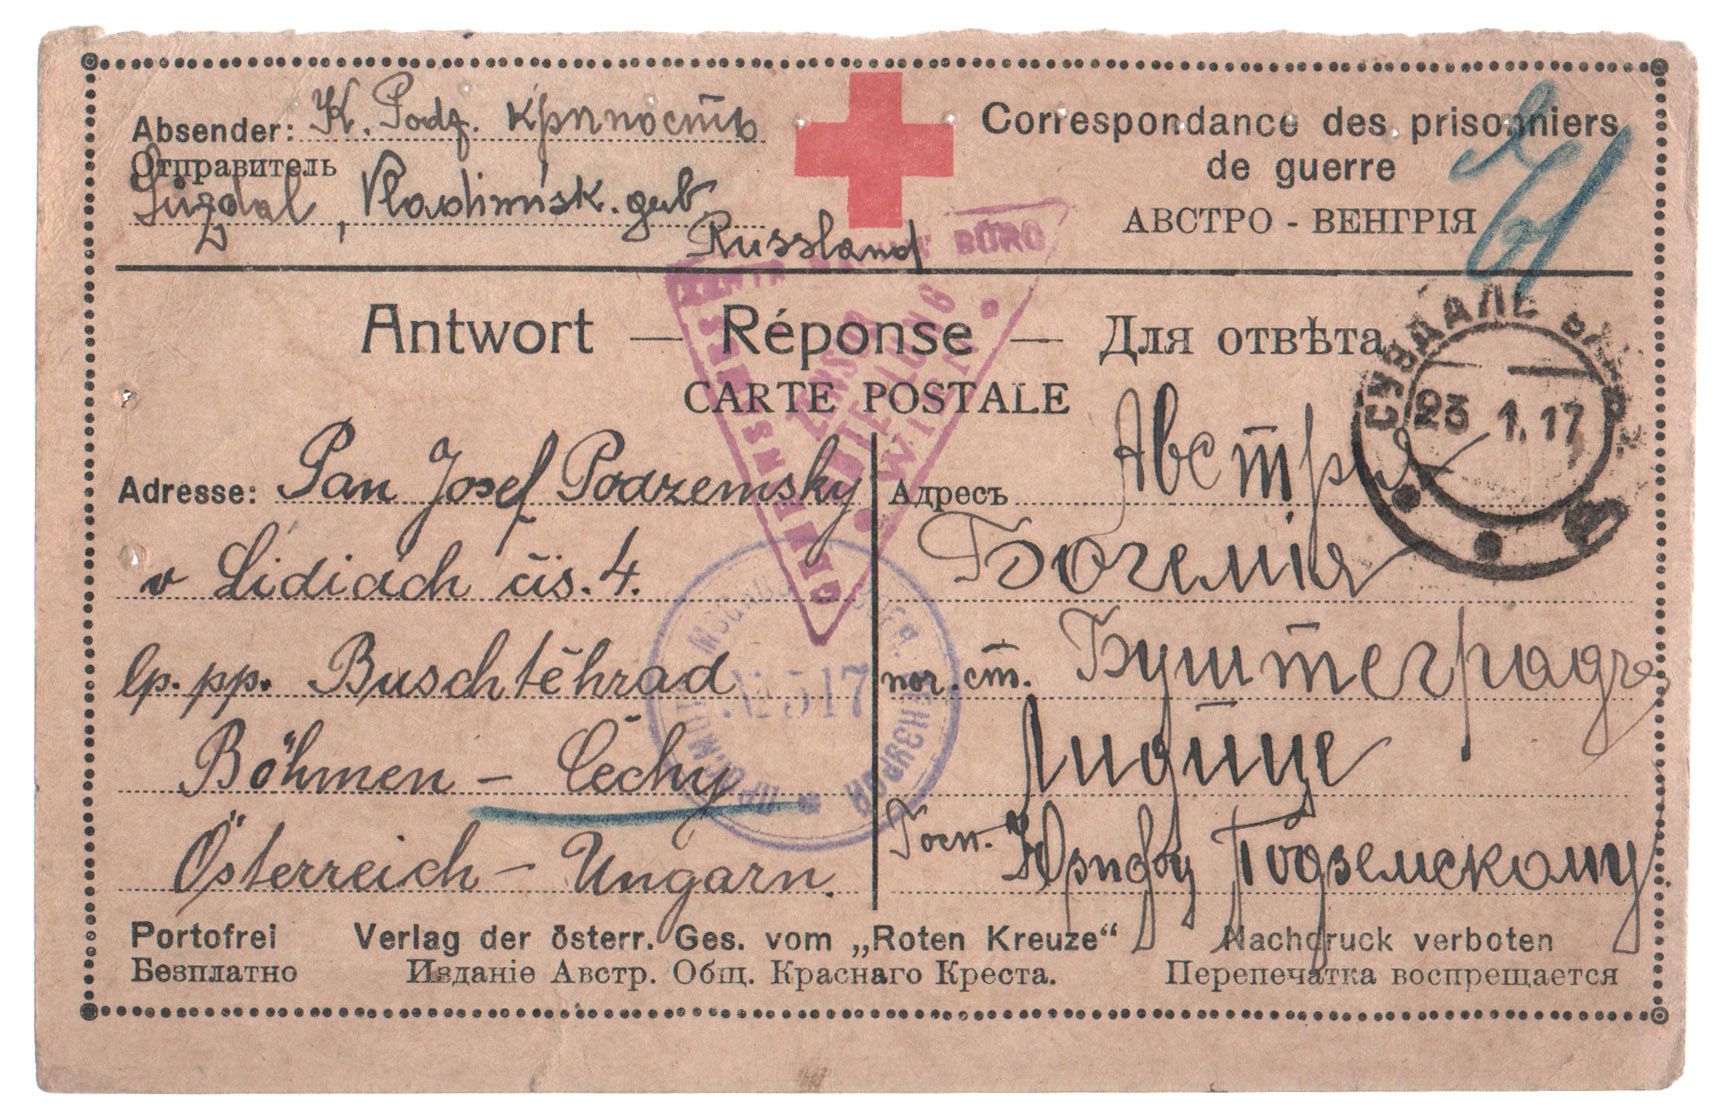 Absender: K. Podz. крппость
Отправитель
Suzdal, Vladimisk. gub
Russland
Correspondance des prisonniers
de guerre
АВСТРО - ВЕНГРІЯ
Antwort — Réponse — Для отвѣта
CARTE POSTALE
СУЗДАЛЬ ВЛАД
23 1.17
Adresse: Pan Josef Podzemsky
v Lidicích čis. 4.
lp. pp. Buschtěhrad
Böhmen – Čechy
Österreich – Ungarn.
Адресъ Австрия
Богемія
поч. ст. Буштеградъ
Лидице
Госп. Юрифу Подземскому
ZENSUR
ABTEILUNG
WIEN
BÜRO
№ 517
Portofrei Verlag der österr. Ges. vom „Roten Kreuze“ Nachdruck verboten
Безплатно Изданіе Австр. Общ. Краснаго Креста. Перепечатка воспрещается